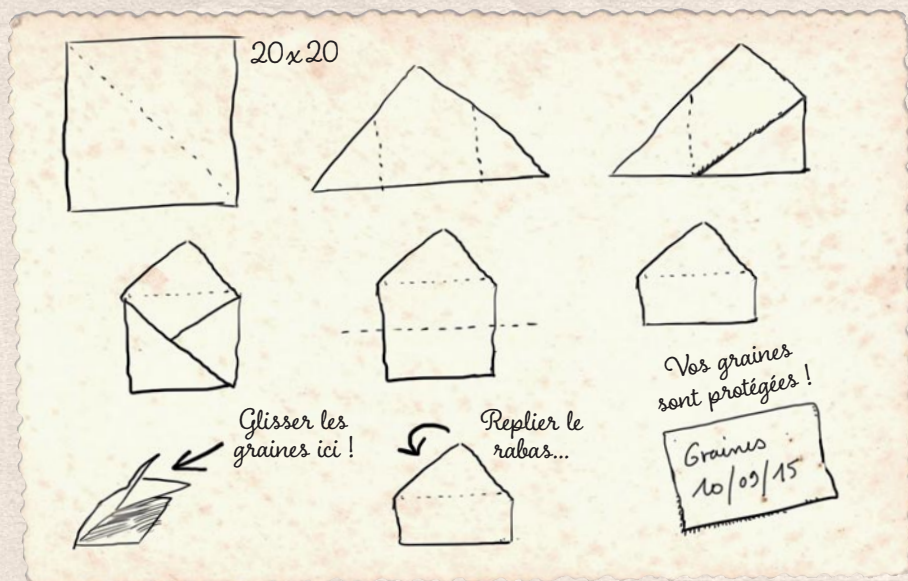 20x20
Glisser les
graines ici !
Replier le
rabas...
Vos graines
sont protégées !
Graines
10/09/15